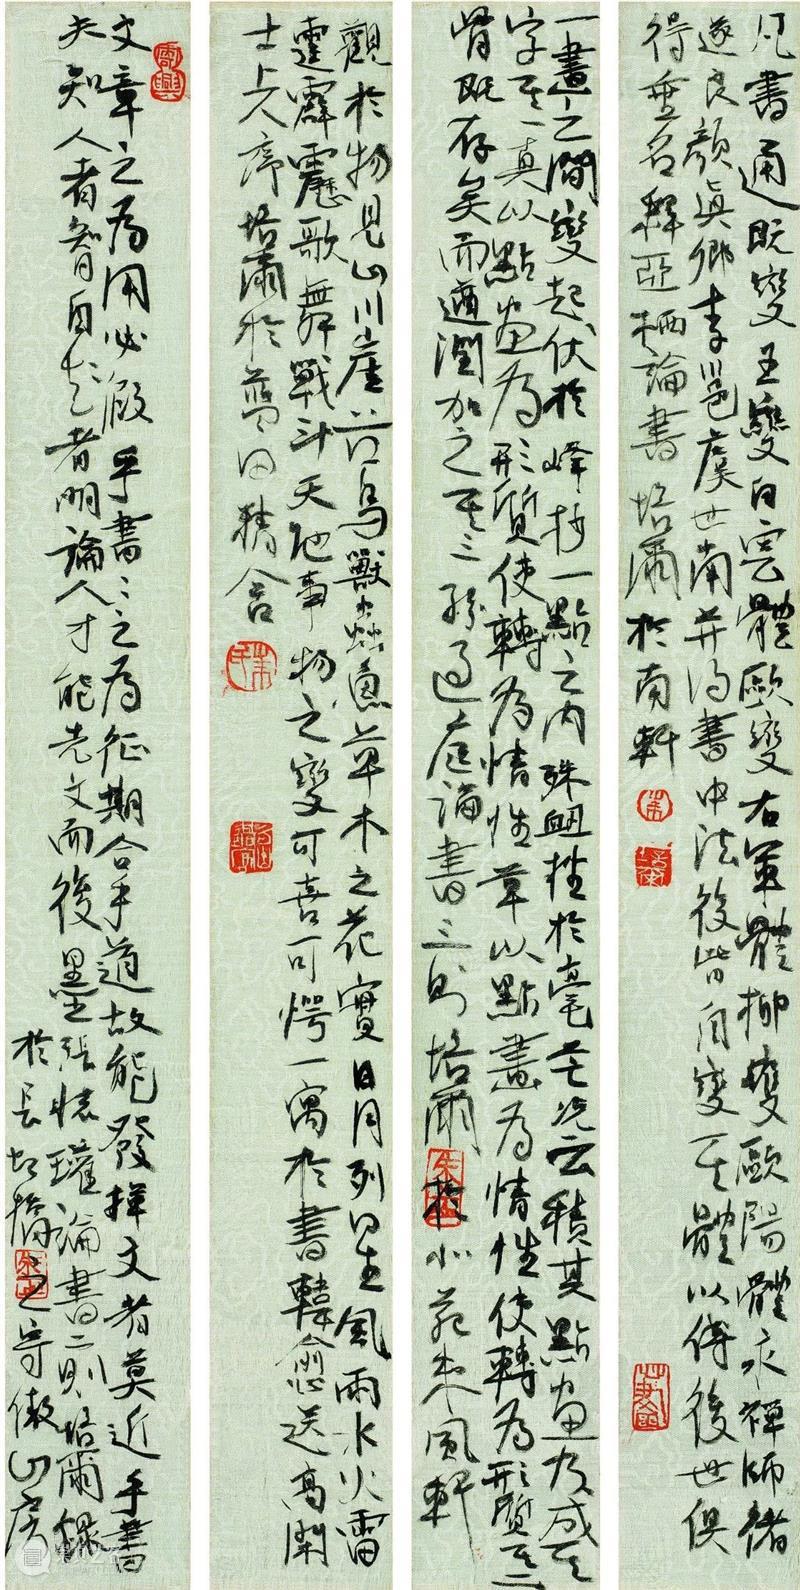 凡書通既變王變白雲體歐變右軍體柳變歐陽體永禪師褚
遂良顏真卿李邕虞世南并得書中法後皆自變其體以傳後世俱
得垂名釋亞栖論書培爾於南軒
一畫之間變起伏於峰杪一點之內殊衄挫於毫芒況云積其點畫乃成其
字其一真以點畫為形質使轉為情性草以點畫為情性使轉為形質其二
骨既存矣而遒潤加之其三孫過庭論書三則培爾於北苑來風軒
觀於物見山川崖谷鳥獸蟲魚草木之花實日月列星風雨水火雷
霆霹靂歌舞戰斗天地事物之變可喜可愕一寓於書韓愈送高閑
士上人序培爾於藍田精舍
文章之為用必假乎書〻之為征期合乎道故能發揮文者莫近乎書
夫知人者智自知者明論人才能先文而後墨張懷瓘論書二則培爾錄
於長橋之寄傲山房